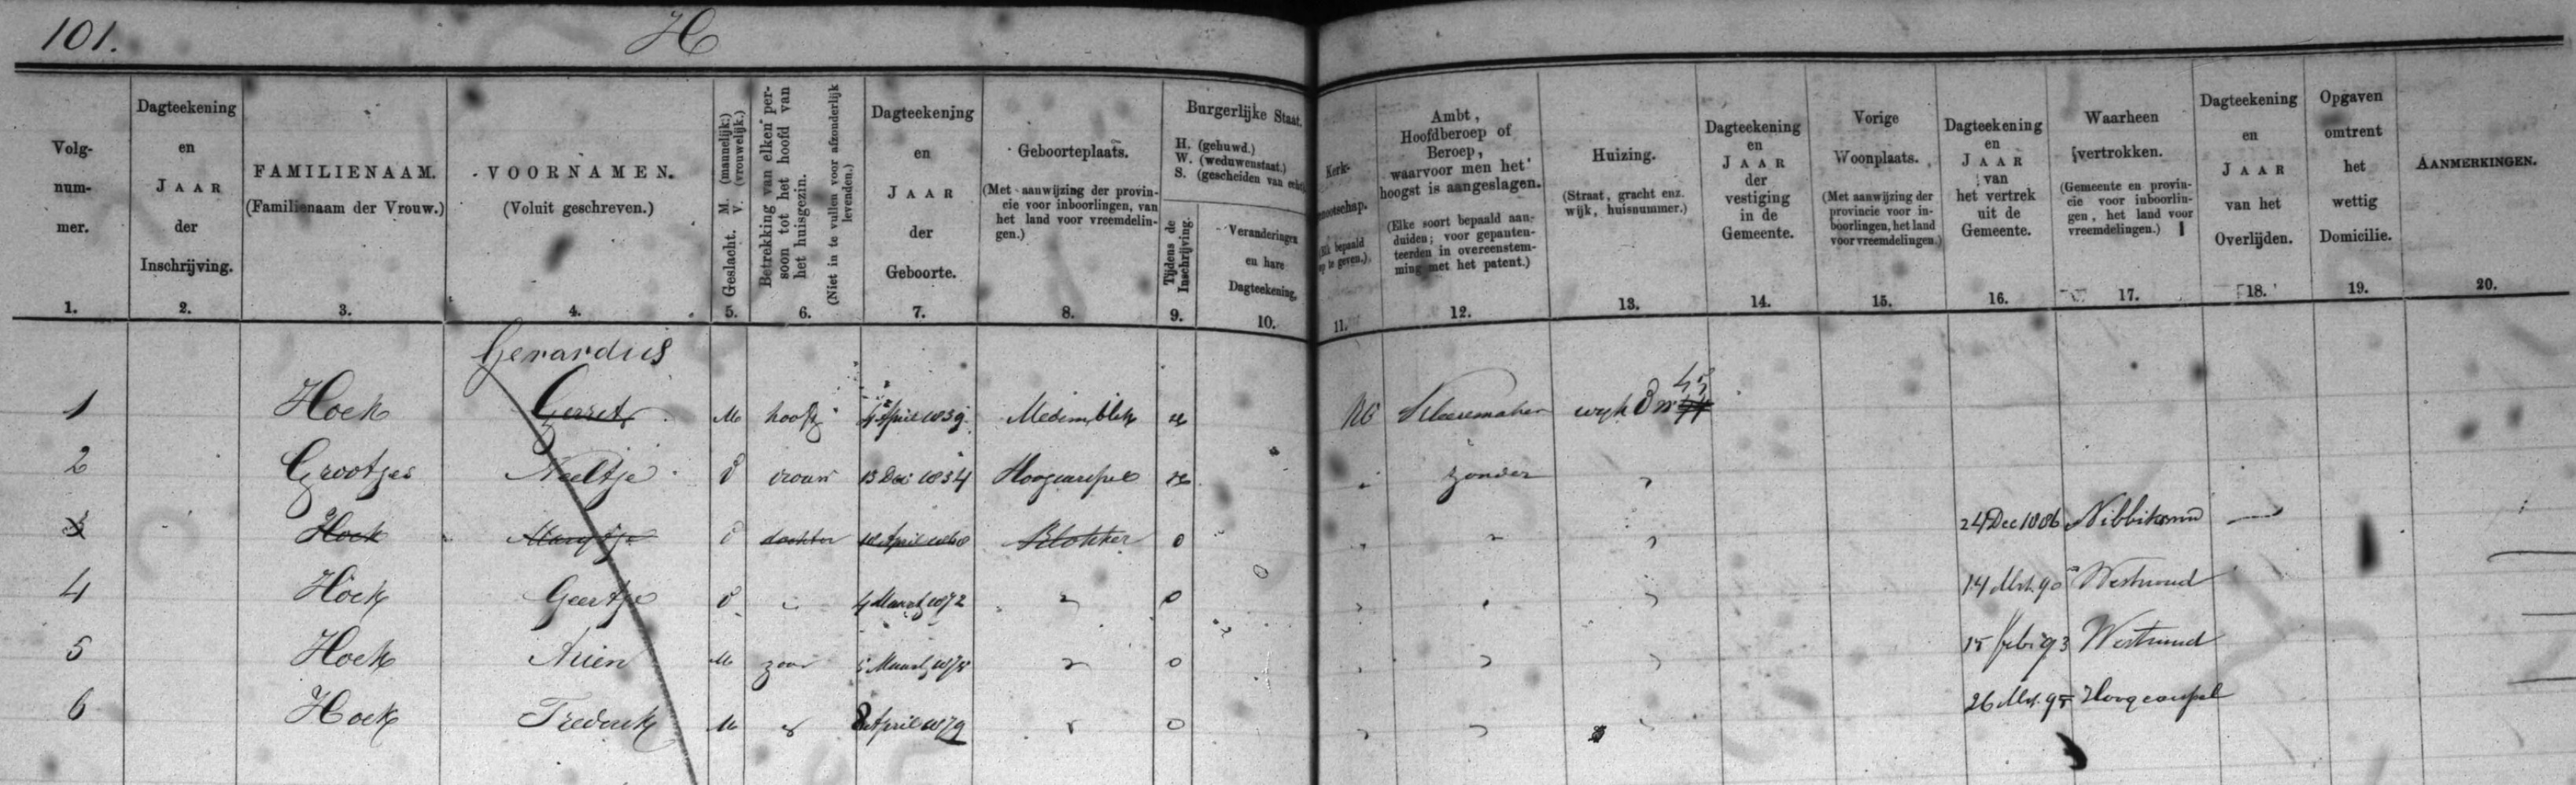 101. H
Volg-
num-
mer.
1.
Dagteekening
en
JAAR
der
Inschrijving.
2.
FAMILIENAAM.
(Familienaam der Vrouw.)
3.
VOORNAMEN.
(Voluit geschreven.)
4.
Geslacht. M. (mannelijk.)
V. (vrouwelijk.)
5.
Betrekking van elken per-
soon tot het hoofd van
het huisgezin.
(Niet in te vullen voor afzonderlijk
levenden.)
6.
Dagteekening
en
JAAR
der
Geboorte.
7.
Geboorteplaats.
(Met aanwijzing der provin-
cie voor inboorlingen, van
het land voor vreemdelin-
gen.)
8.
Burgerlijke Staat.
H. (gehuwd.)
W. (weduwenstaat.)
S. (gescheiden van echt
Tijdens de
Inschrijving.
9.
Veranderingen
en hare
Dagteekening.
10.
Kerk-
nootschap.
bepaald
op te geven.)
11.
Ambt,
Hoofdberoep of
Beroep,
waarvoor men het
hoogst is aangeslagen.
(Elke soort bepaald aan-
duiden; voor gepatenten-
teerden in overeenstem-
ming met het patent.)
12.
Huizing.
(Straat, gracht enz.
wijk, huisnummer.)
13.
Dagteekening
en
JAAR
der
vestiging
in de
Gemeente.
14.
Vorige
Woonplaats.
(Met aanwijzing der
provincie voor in-
boorlingen, het land
voor vreemdelingen.)
15.
Dagteekening
en
JAAR
van
het vertrek
uit de
Gemeente.
16.
Waarheen
vertrokken.
(Gemeente en provin-
cie voor inboorlin-
gen, het land voor
vreemdelingen.)
17.
Dagteekening
en
JAAR
van het
Overlijden.
18.
Opgaven
omtrent
het
wettig
Domicilie.
19.
AANMERKINGEN.
20.
Gerardus
1 Hoek Gerrit M hoofd 4 April 1839 Medemblik H NG wijk B no 45
2 Grootjes Neeltje V vrouw 13 Dec 1834 Hoogcarspel H " zonder "
3 Hoek Maartje V dochter April Blokker O " " " 24 Dec 1886 Nibbixwoud
4 Hoek Geertje V " 4 Maart 1872 " O " " " 14 Mrt. 90 Westwoud
5 Hoek Arien M zoon 5 Maart 1875 " O " " " 15 Febr 93 Westwoud
6 Hoek Frederik M " 8 April 1879 " O " " " 26 Mrt. 95 Hoogcarspel